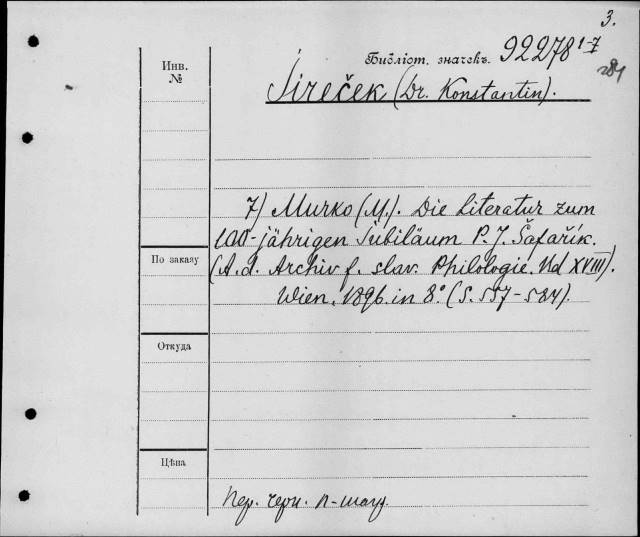 3.
Библіот. значекъ. 92278 1-7
281
Инв.
№
Jireček (Dr. Konstantin).
7) Murko (M.). Die Literatur zum
100-jährigen Jubiläum P. J. Šafařik.
По заказу
(A. d. Archiv f. slav. Philologie. Bd XVIII).
Wien, 1896. in 8.° (S. 557-584).
Откуда
Цѣна
Пер. черн.